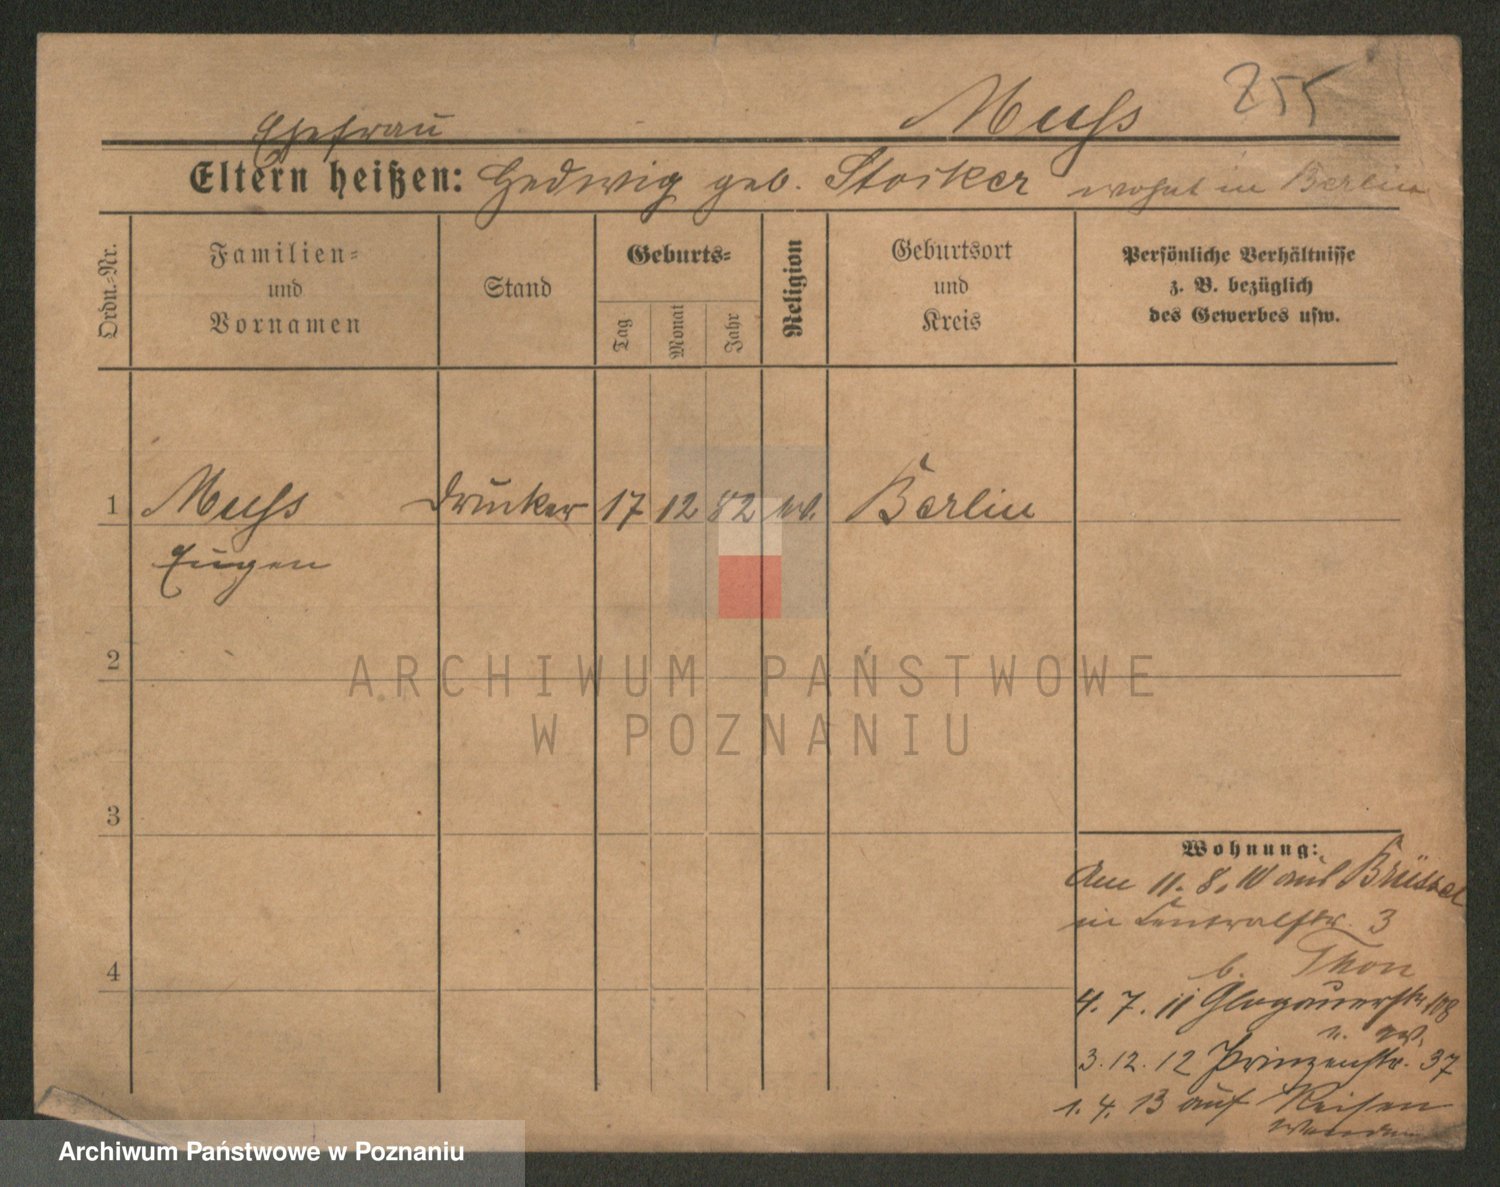 255
Muhs
Ehefrau
Eltern heißen: Hedwig geb. Stocker wohnt in Berlin
Ordn.-Nr.
Familien- und Vornamen
Stand
Geburts-
Tag
Monat
Jahr
Religion
Geburtsort und Kreis
Persönliche Verhältnisse
z. B. bezüglich
des Gewerbes usw.
1 Muhs Drucker 17 12 82 ev. Berlin
Eugen
2
ARCHIWUM PAŃSTWOWE
W POZNANIU
3
Wohnung:
Am 11. 8. 10 aus Brüssel
in Centralstr. 3
b. Thon
4. 7. 11 Glogauerstr. 108
4
3. 12. 12 Prinzenstr. 37
1. 4. 13 auf Reisen
Archiwum Państwowe w Poznaniu